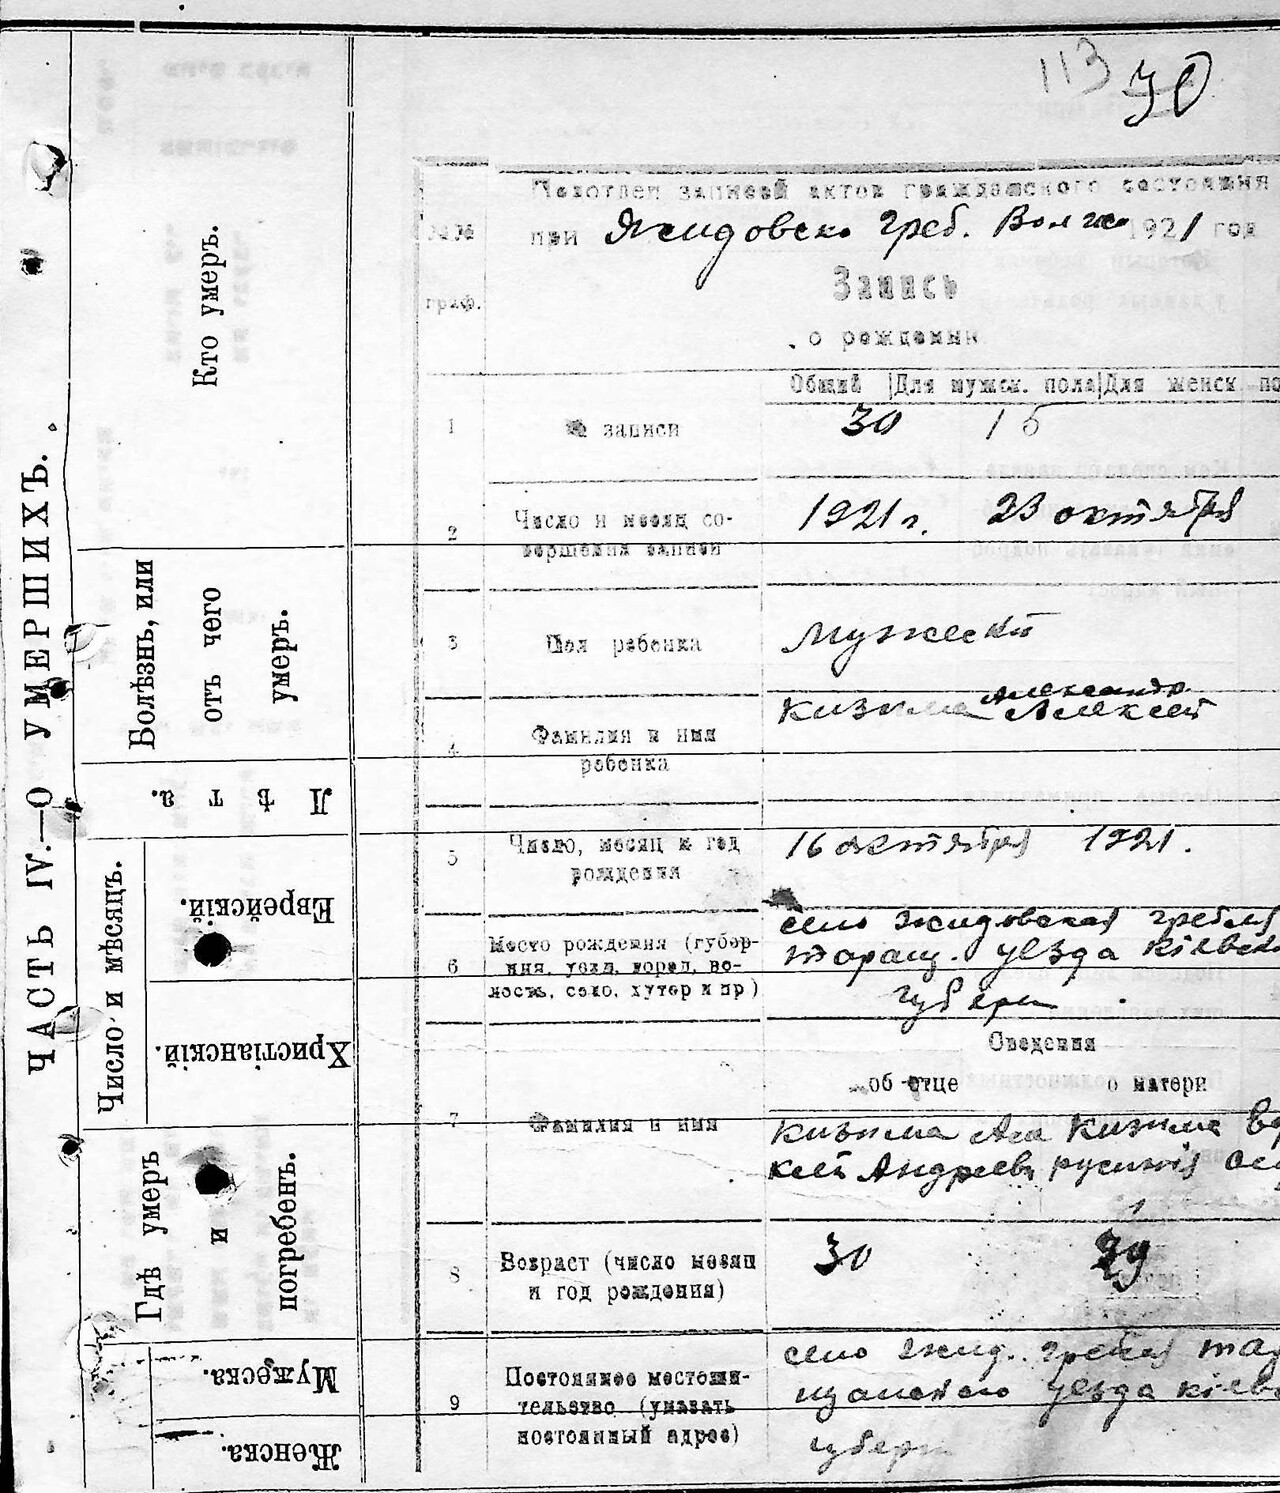 113 30
Подотдел записей актов гражданского состояния
№№ при Жидовско греб. Волж 1921 год
граф.
Запись
о рождении
Общий Для мужск. пола Для женск по
1 № записи 30 15
2 Число и месяц со-
вершения записи
1921 г. 23 октября
3 Пол ребенка Мужеский
Александр
4 Фамилия и имя
ребенка
Кизима Алексей
5 Число, месяц и год
рождения
16 октября 1921.
6 Место рождения (губер-
ния, уезд, город, во-
лость, село, хутор и пр)
село Жидовская гребля
таращ. уезда Кіевск
губерн
Сведения
об отце о матери
7 Фамилия и имя
Кизима Але Кизима
ксей Андреев
8 Возраст (число месяц
и год рождения)
30 29
9 Постоянное местожи-
тельство (указать
постоянный адрес)
село Жид. гребля та
щанского уезда Кіев
губерн
ЧАСТЬ IV.—О УМЕРШИХЪ.
Кто умеръ.
Болѣзнь, или
отъ чего
умеръ.
Лѣта.
Число и мѣсяцъ.
Еврейскій.
Христіанскій.
Гдѣ умеръ
и
погребенъ.
Мужеска.
Женска.